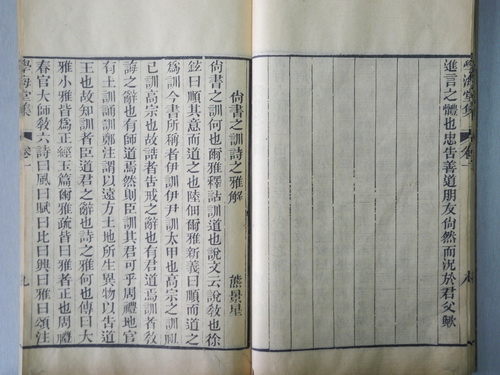 學海堂集
進言之體也忠告善道朋友尚然而況於君父歟
尚書之訓詩之雅解
熊景星
尚書之訓何也爾雅釋詁訓道也說文云說敎也徐
鉉曰順其意而道之也陸佃爾雅新義曰順而道之
爲訓今書所稱者伊訓伊尹訓太甲也高宗之訓祖
已訓高宗也故詁者古戒之辭也有君道焉訓者敎
誨之辭也有師道焉然則臣訓其君可乎周禮地官
有土訓誦訓鄭注謂以遠方土地所生異物以古道
王也故知訓者臣道君之辭也詩之雅何也傳曰大
雅小雅皆爲正經玉篇爾雅疏皆曰雅者正也周禮
春官大師敎六詩曰風曰賦曰比曰興曰雅曰頌注
學海堂集 卷一 九